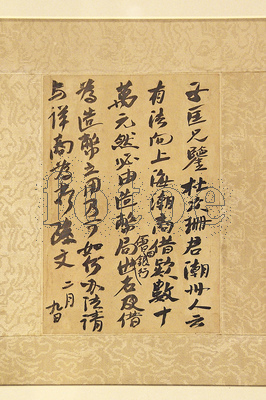 子匡兄鑒杜次珊君潮州人云
有法向上海潮商借款數十
萬元然必由造幣局出名及借
中國銀行
為造幣之用乃可如何辦法請
与詳商為荷 孫文 二月
九日
fotoe